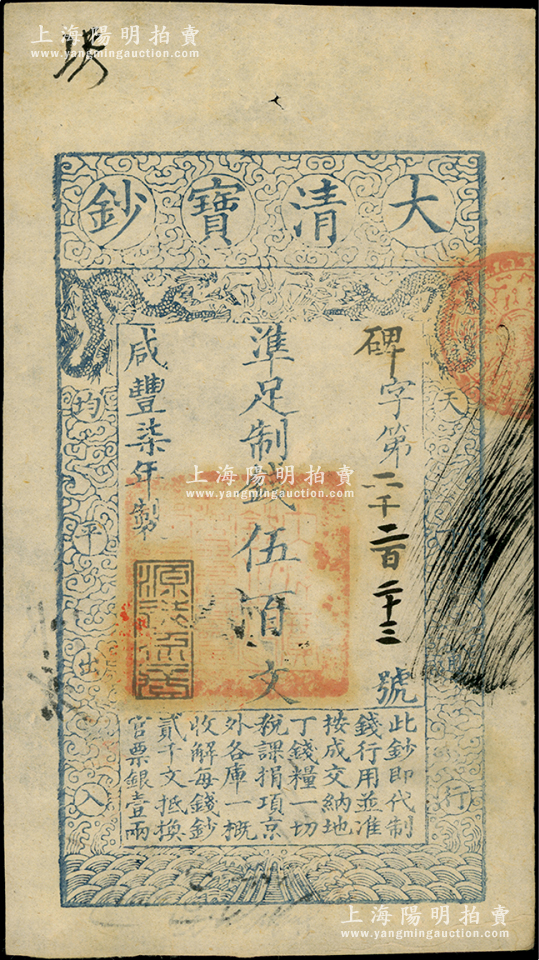 上海陽明拍賣
www.yangmingauction.com
大清寶鈔
碑字第二千二百二十三號
準足制錢伍百文
咸豐柒年製
天
行
均平出入
此鈔即代制
錢行用並准
按成交納地
丁錢糧一切
稅課捐項京
外各庫一概
收解每錢鈔
貳千文抵換
官票銀壹兩
上海陽明拍賣
www.yangmingauction.com
上海陽明拍賣
www.yangmingauction.com